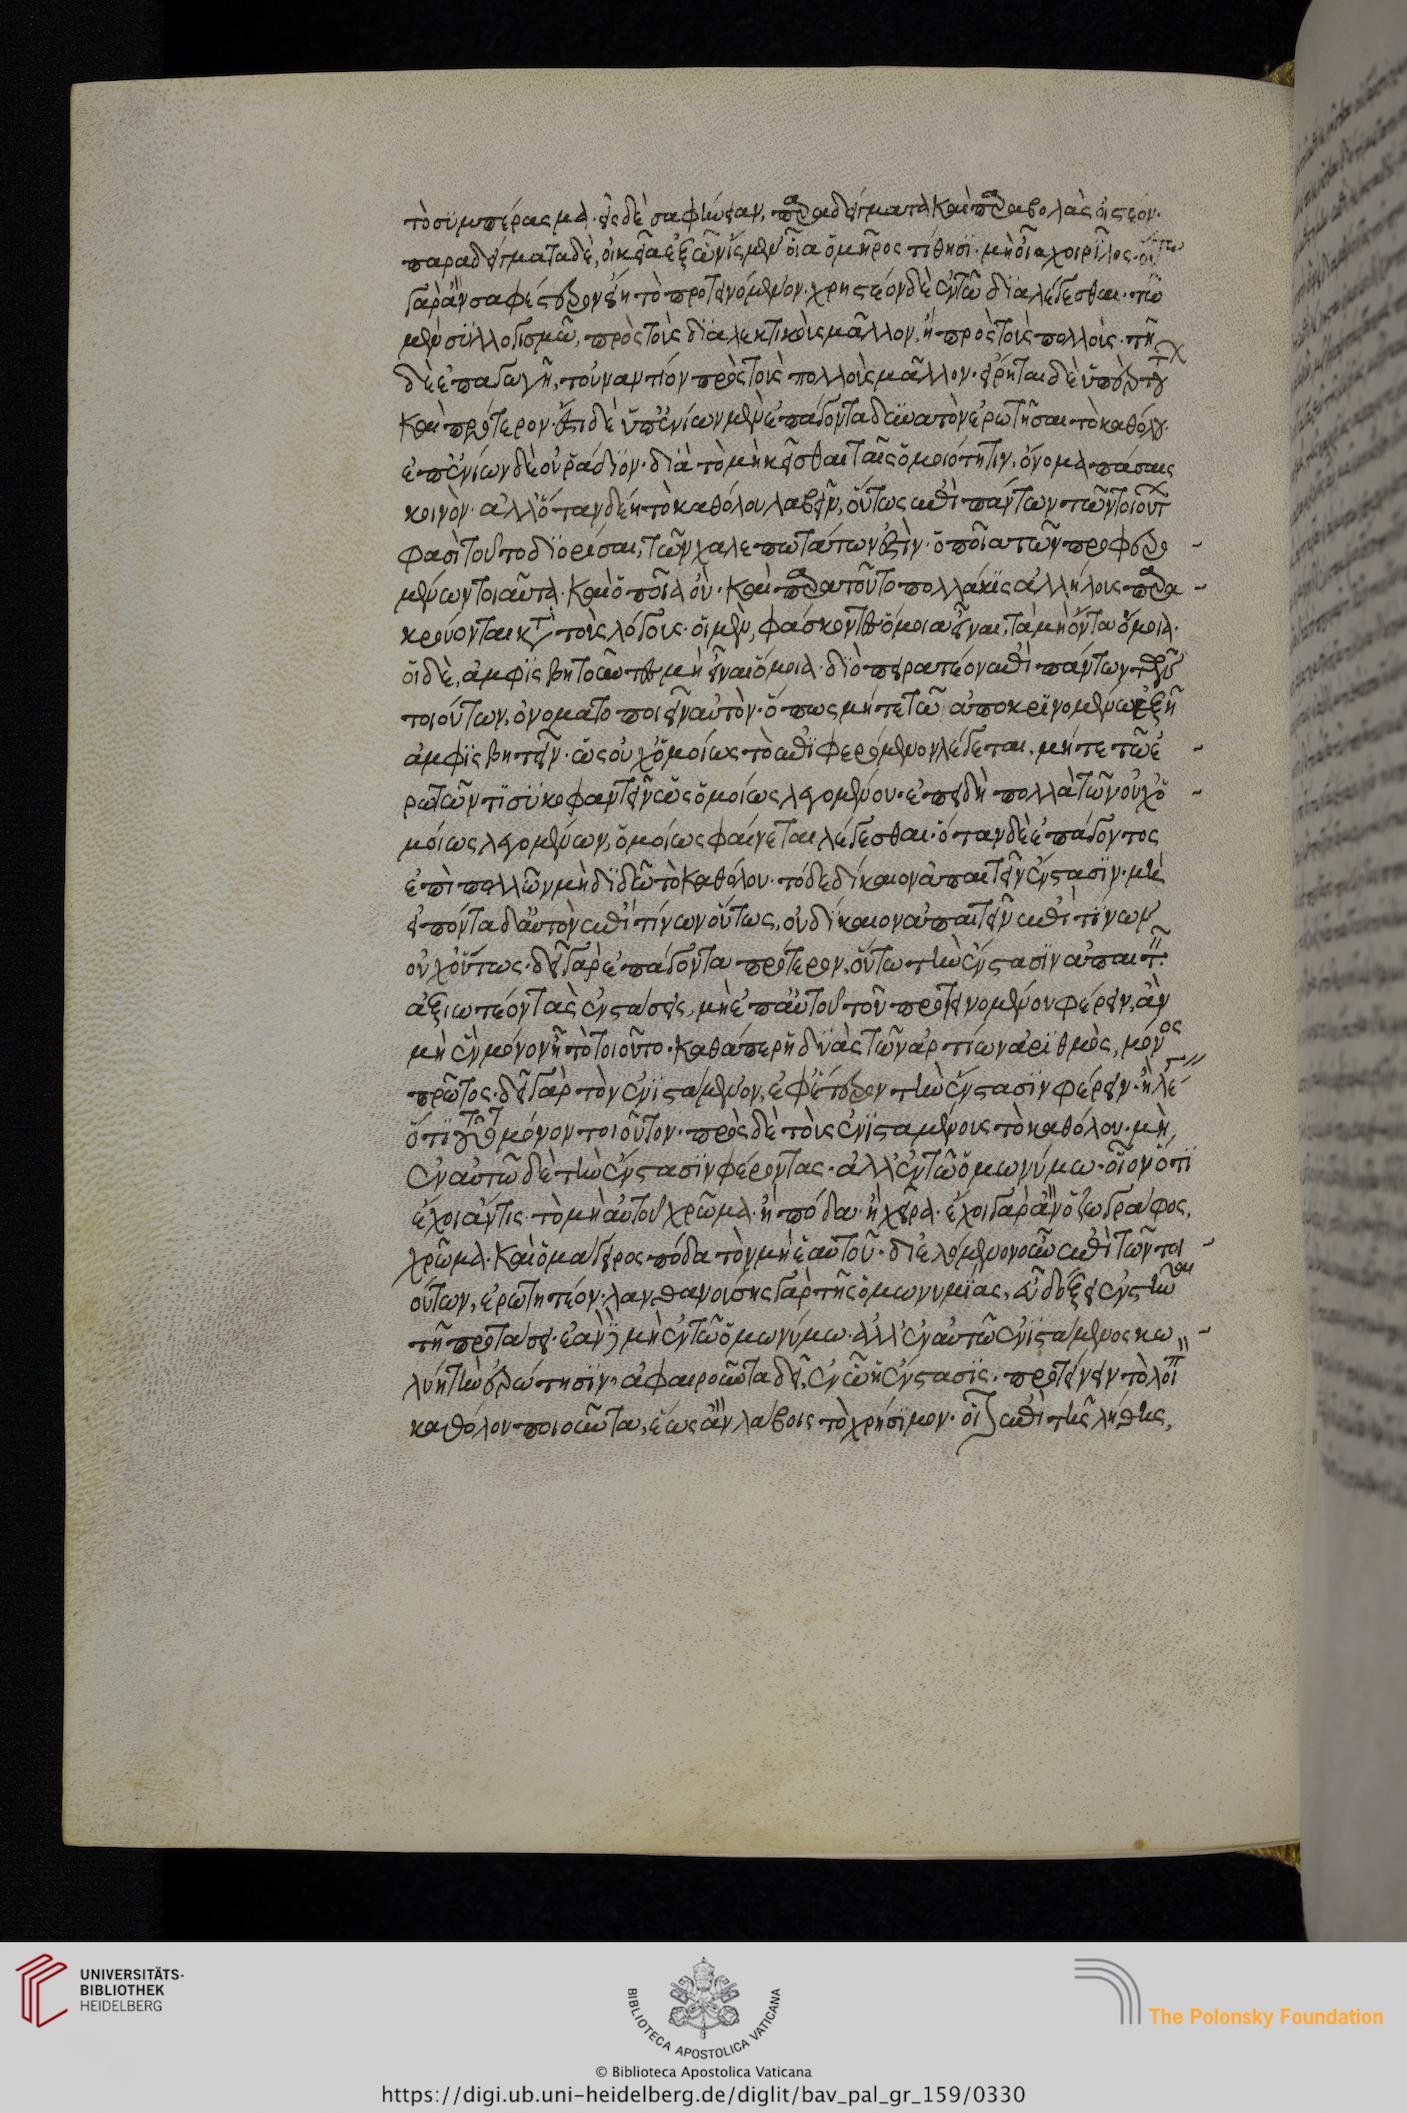 τὸ συμπέρασμα. εἰς δὲ σαφήνειαν, παραδείγματα καὶ παραβολὰς οἰστέον.
παραδείγματα δὲ, οἰκεῖα ἐξ ὧν ἴσμεν οἷα ὅμηρος τίθησι. μὴ οἷα χοιρῖλος. οὕτω
γὰρ ἂν σαφέστερον εἴη τὸ προτεινόμενον. χρηστέον δὲ ἐν τῶ διαλέγεσθαι. τῶ
μὲν συλλογισμῶ, πρὸς τοὺς διαλεκτικοὺς μᾶλλον, ἢ πρὸς τοὺς πολλούς. τῆ
δὲ ἐπαγωγῆ, τοὐναντίον πρὸς τοὺς πολλοὺς μᾶλλον. εἴρηται δὲ ὑπὲρ τούτων
καὶ πρότερον. ἔστι δὲ ὑπ' ἐνίων μὲν ἐπάγοντα δυνατὸν ἐρωτῆσαι τὸ καθόλου.
ἐπ' ἐνίων δὲ οὐ ῥάδιον. διὰ τὸ μὴ κεῖσθαι ταῖς ὁμοιότησιν, ὄνομα πάσαις
κοινόν. ἀλλ' ὅταν δέη τὸ καθόλου λαβεῖν, οὕτως ἐπὶ πάντων τῶν τοιούτων
φασὶ τοῦτο διορίσαι, τῶν χαλεπωτάτων ἐστὶν. ὁποῖα τῶν προφερο
μένων τοιαῦτα. καὶ ὁποῖα οὐ. καὶ παρὰ τοῦτο πολλάκις ἀλλήλους παρα
κρούονται κατὰ τοὺς λόγους. οἱ μὲν, φάσκοντες ὅμοια εἶναι, τὰ μὴ ὄντα ὅμοια.
οἱ δὲ, ἀμφισβητοῦντες μὴ εἶναι ὅμοια. διὸ πειρατέον ἐπὶ πάντων τῶν
τοιούτων, ὀνοματοποιεῖν αὐτὸν. ὅπως μήτε τῶ ἀποκρινομένω ἐξῆ
ἀμφισβητεῖν. ὡς οὐχ ὁμοίως τὸ ἐπιφερόμενον λέγεται, μήτε τῶ ἐ
ρωτῶντι συκοφαντεῖν ὡς ὁμοίως λεγομένου. ἐπειδὴ πολλὰ τῶν οὐχ ὁ
μοίως λεγομένων, ὁμοίως φαίνεται λέγεσθαι. ὅταν δὲ ἐπάγοντος
ἐπὶ πολλῶν μὴ διδῶ τὸ καθόλου. τόδε δίκαιον ἀπαιτεῖν ἔνστασιν. μὴ
εἰπόντα δ' αὐτὸν ἐπὶ τίνων οὕτως, οὐ δίκαιον ἀπαιτεῖν ἐπὶ τίνων
οὐχ οὕτως. δεῖ γὰρ ἐπάγοντα πρότερον, οὕτω τὴν ἔνστασιν ἀπαιτεῖν.
ἀξιωτέον τὰς ἐνστάσεις, μὴ ἐπ' αὐτοῦ τοῦ προτεινομένου φέρειν, ἂν
μὴ ἓν μόνον ἦ τὸ τοιοῦτο. καθάπερ ἡ δυὰς τῶν ἀρτίων ἀριθμὸς, μόνος
πρῶτος. δεῖ γὰρ τὸν ἐνιστάμενον, ἐφ' ἑτέρου τὴν ἔνστασιν φέρειν. ἢ λέγειν
ὅτι τοῦτο μόνον τοιοῦτον. πρὸς δὲ τοὺς ἐνισταμένους τὸ καθόλου. μὴ
ἐν αὐτῶ δὲ τὴν ἔνστασιν φέροντας. ἀλλ' ἐν τῶ ὁμωνύμω. οἷον ὅτι
ἔχοι ἄν τις τὸ μὴ αὑτοῦ χρῶμα. ἢ πόδα. ἢ χεῖρα. ἔχοι γὰρ ἂν ὁ ζωγράφος,
χρῶμα. καὶ ὁ μάγειρος πόδα τὸν μὴ ἑαυτοῦ. διελόμενον οὖν ἐπὶ τῶν τοι
ούτων, ἐρωτητέον. λανθανούσης γὰρ τῆς ὁμωνυμίας, εὖ δόξει ἐνστῆναι
τῆ προτάσει. ἐὰν δὲ μὴ ἐν τῶ ὁμωνύμω. ἀλλ' ἐν αὐτῶ ἐνιστάμενος κω
λύη τὴν ἐρώτησιν. ἀφαιροῦντα δεῖ, ἐν ὧ ἡ ἔνστασις, προτείνειν τὸ λοιπὸν
καθόλου ποιοῦντα, ἕως ἂν λάβοις τὸ χρήσιμον. οἷον ἐπὶ τῆς λήθης,
UNIVERSITÄTS-
BIBLIOTHEK
HEIDELBERG
BIBLIOTECA APOSTOLICA VATICANA
The Polonsky Foundation
© Biblioteca Apostolica Vaticana
https://digi.ub.uni-heidelberg.de/diglit/bav_pal_gr_159/0330